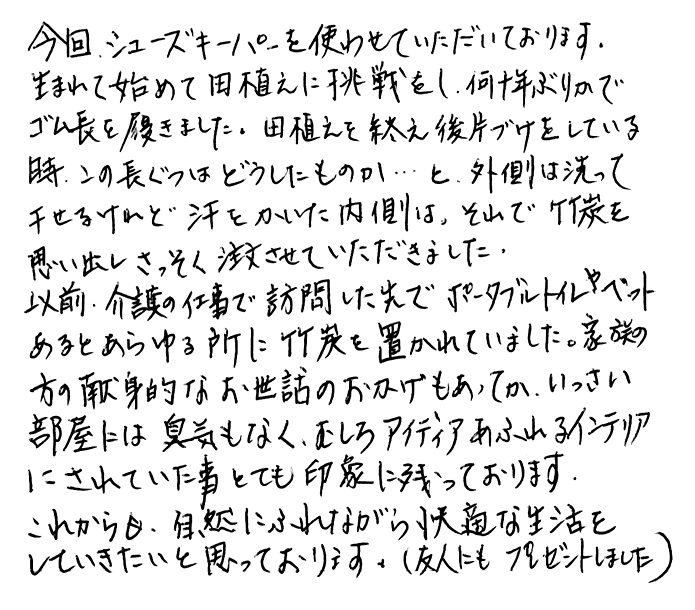 今回、シューズキーパーを使わせていただいております。
生まれて始めて田植えに挑戦をし、何十年ぶりかで
ゴム長を履きました。田植えを終え後片づけをしている
時、この長ぐつはどうしたものか…と、外側は洗って
干せるけれど汗をかいた内側は、それで竹炭を
思い出しさっそく注文させていただきました。
以前、介護の仕事で訪問した先でポータブルトイレやペット
あるとあらゆる所に竹炭を置かれていました。家族の
方の献身的なお世話のおかげもあってか、いっさい
部屋には臭気もなく、むしろアイディアあふれるインテリア
にされていた事とても印象に残っております。
これからも、自然にふれながら快適な生活を
していきたいと思っております。(友人にもプレゼントしました)